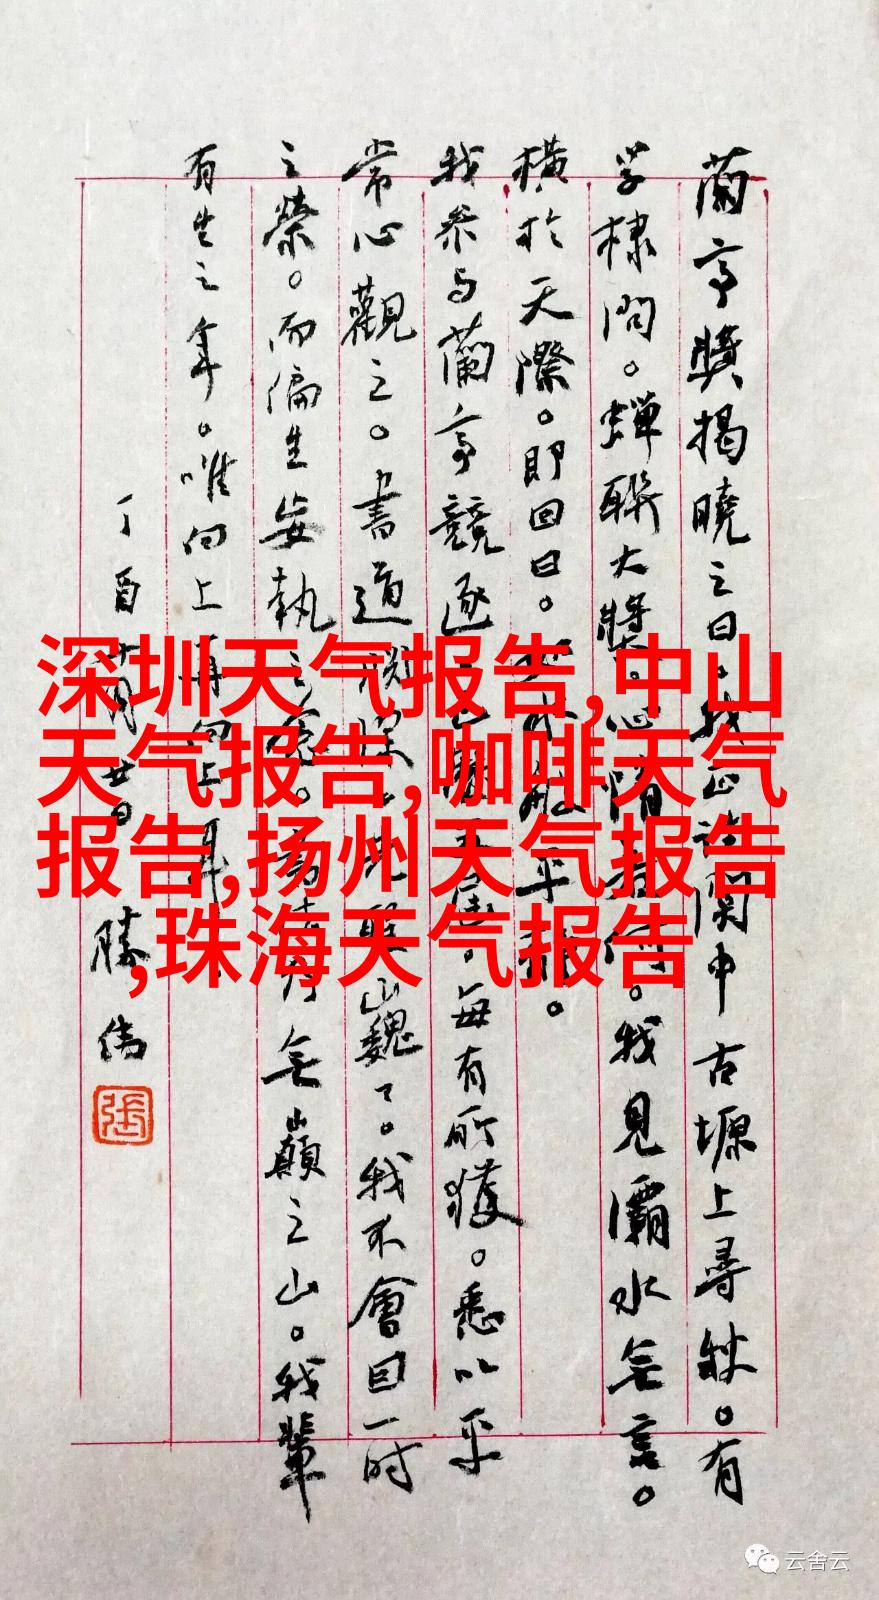 蘭亭獎揭曉之日。我正於關中古塬上尋秋。有
学棣問。蟬聯大獎。心情若何。我見灞水無言。
橫於天際。即回曰。水般平。
我参与蘭亭競逐。每有所獲。悉以平
常心觀之。書道深山巍了。我不會因一时
之榮。而偏生妄執之無巔之山。我輩
有生之年。唯向上再向上耳。
丁酉 勝偉
張
深圳天气报告,中山
天气报告,咖啡天气
报告,扬州天气报告
,珠海天气报告
云舍云